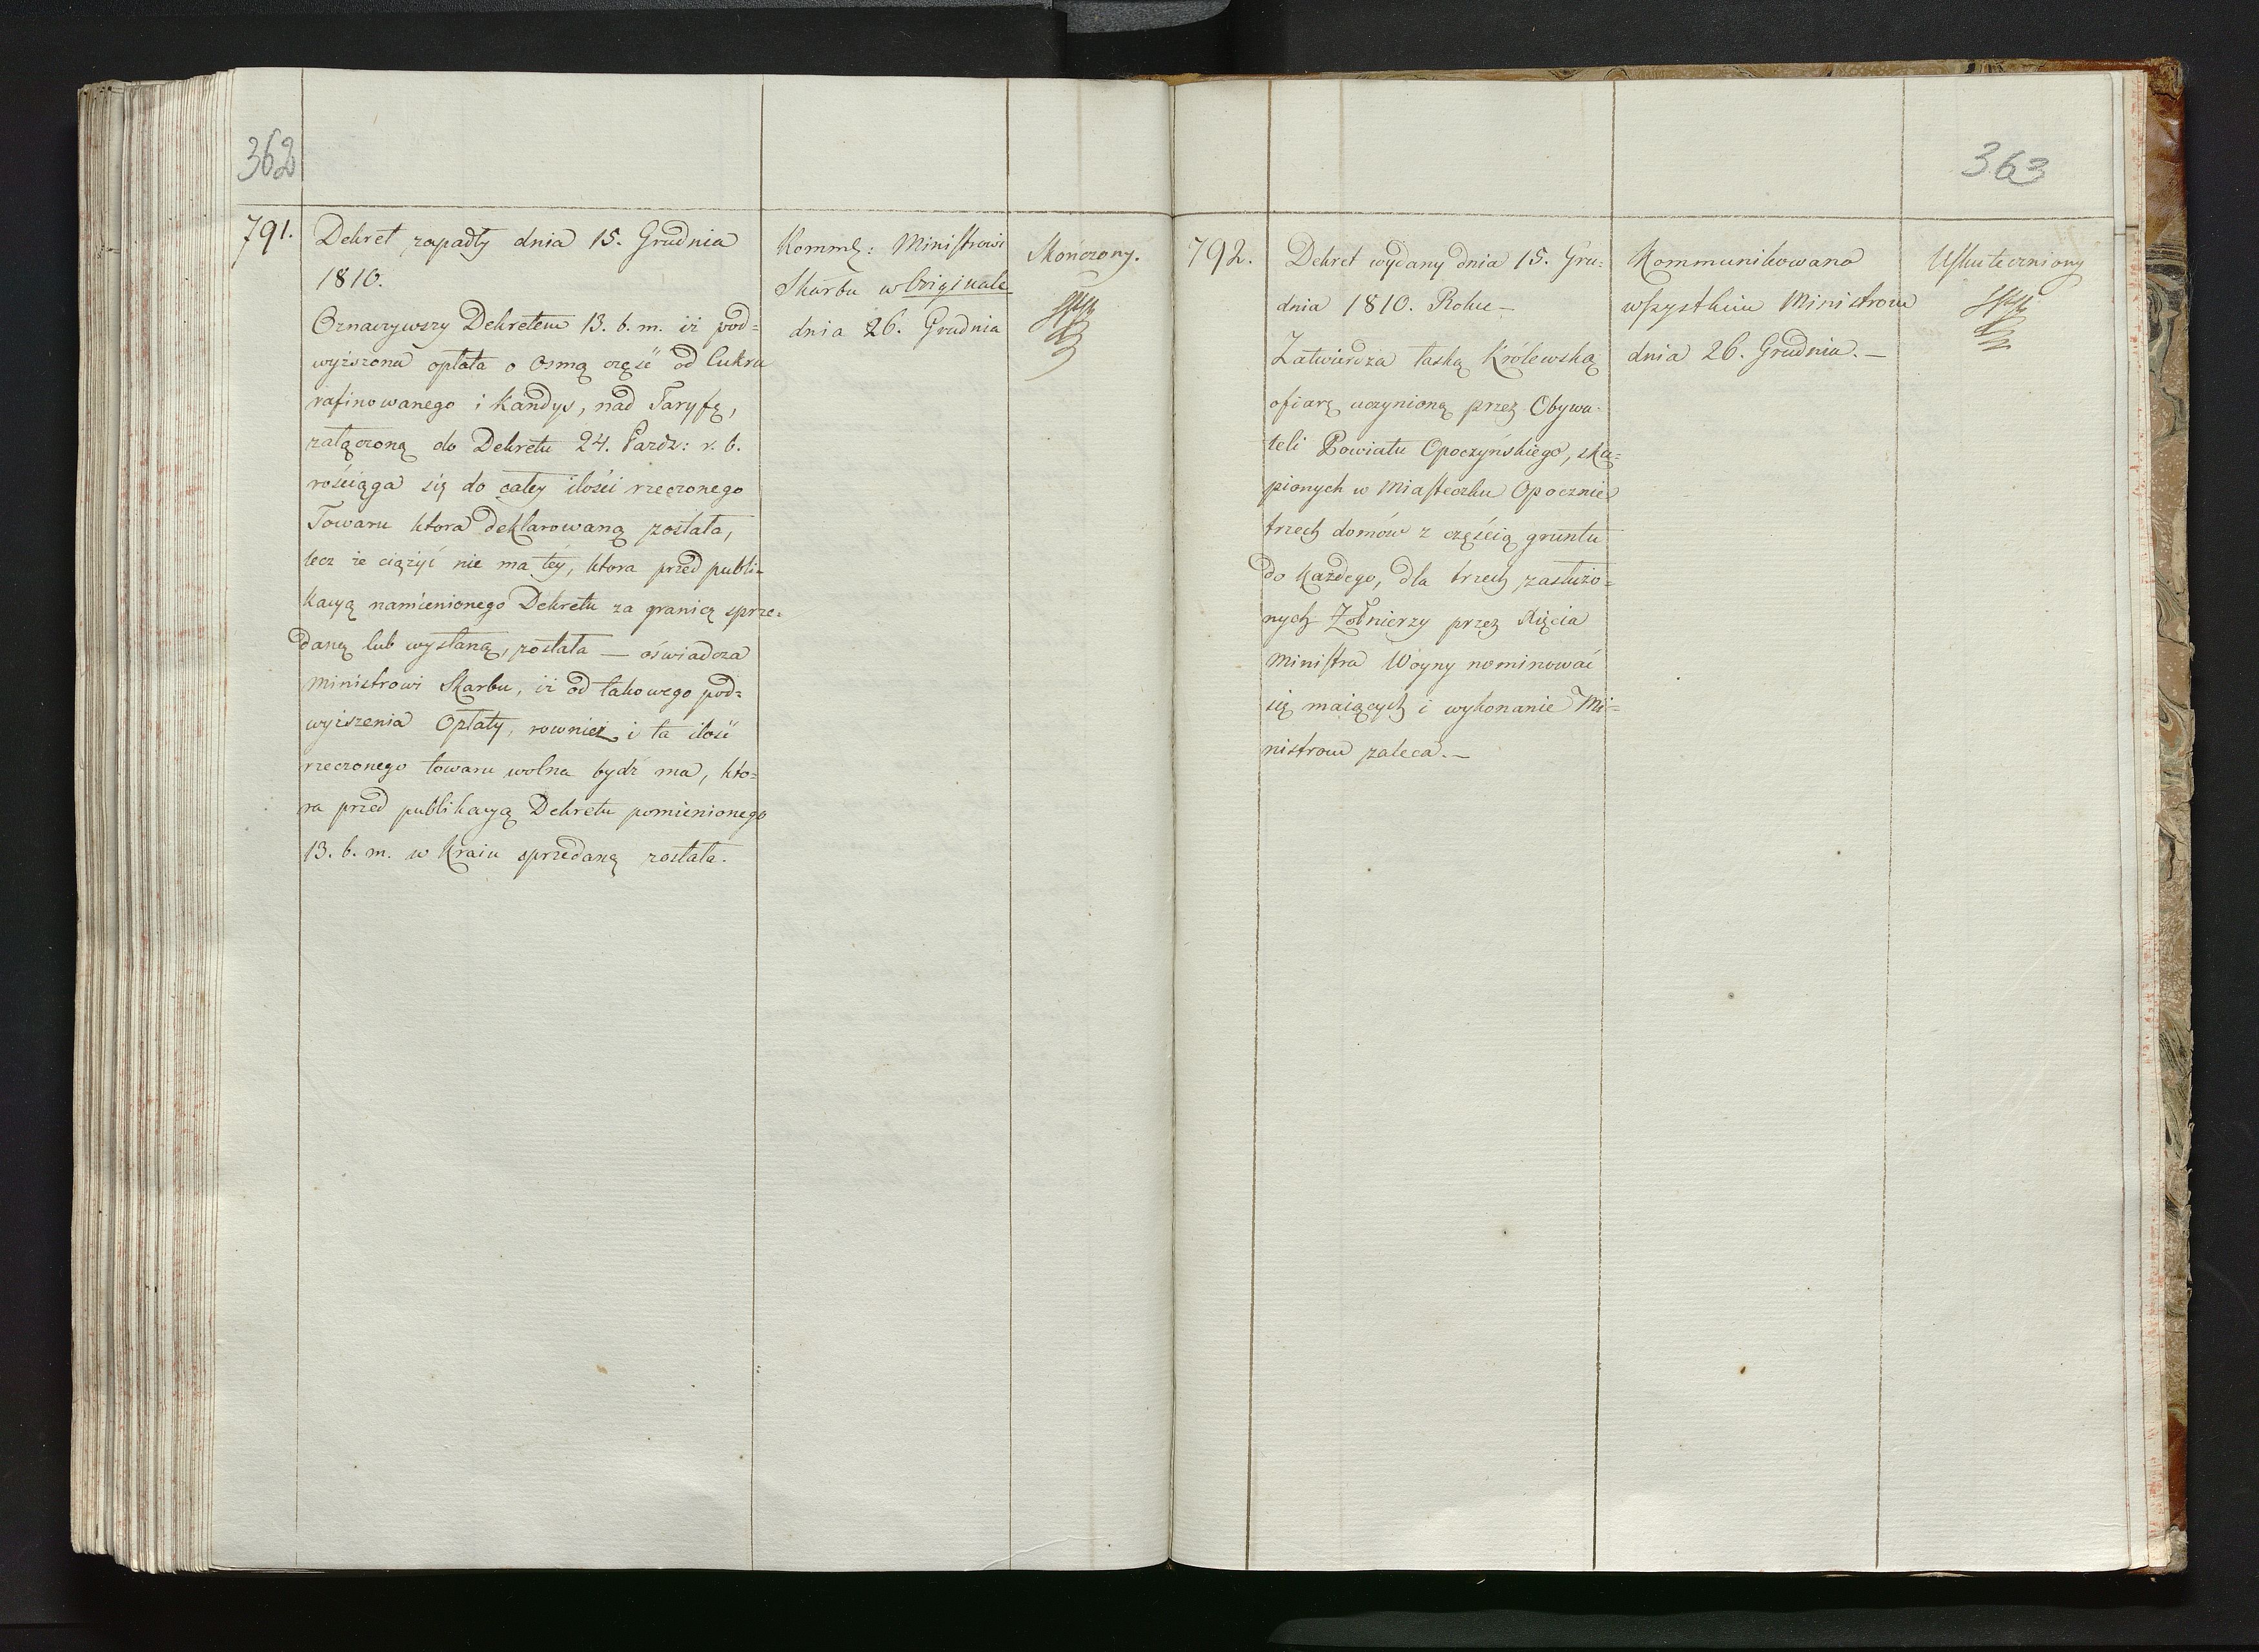 362
791.
Dekret zapadły dnia 15. Grudnia
1810.
Oznaczywszy Dekretem 13. b. m. iż pod=
wyższona opłata o osmą część od Cukru
rafinowanego i Kandys, nad Taryfę,
załączoną do Dekretu 24. Paźdz: r. b.
rościąga się do całey ilości rzeczonego
Towaru ktora deklarowaną została,
lecz że ciążyć nie ma téy, ktora przed publi=
kacyą namienionego Dekretu za granicę sprze=
daną lub wysłaną, została — oświadcza
Ministrowi Skarbu, iż od takowego pod=
wyższenia Opłaty, rownież i ta ilość
rzeczonego towaru wolna bydź ma, kto=
ra przed publikacyą Dekretu pomienionego
13. b. m. w Kraiu sprzedaną została.
Kommk: Ministrowi
Skarbu w Originale
dnia 26. Grudnia
Skończony.
363
792.
Dekret wydany dnia 15. Gru=
dnia 1810. Roku —
Zatwierdza łaską Królewską
ofiarę uczynioną przez Obywa=
teli Powiatu Opoczyńskiego, sku=
pionych w Miasteczku Opocznie
trzech domów z częścią gruntu
do każdego, dla trzech zasłużo=
nych Żołnierzy przez Xięcia
Ministra Woyny nominować
się maiących i wykonanie Mi=
nistrom zaleca. —
Kommunikowano
wszystkim Ministrom
dnia 26. Grudnia. —
Uskuteczniony